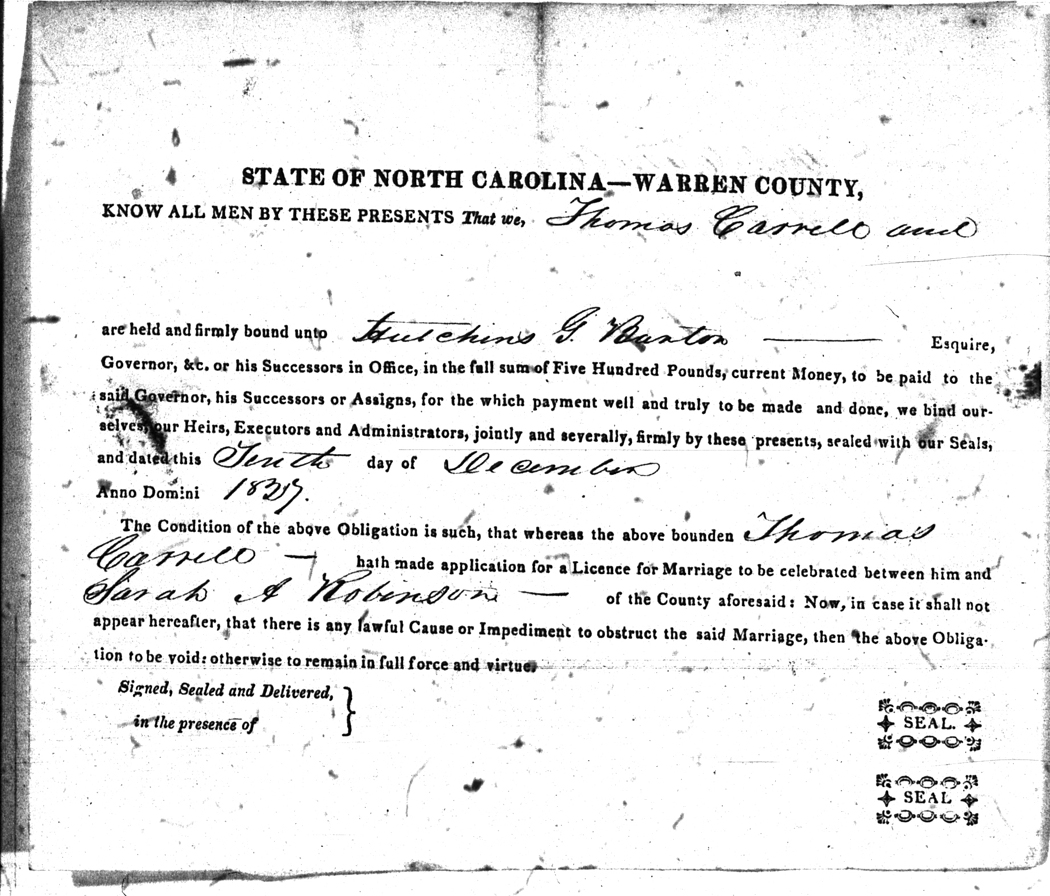 STATE OF NORTH CAROLINA—WARREN COUNTY,
KNOW ALL MEN BY THESE PRESENTS That we, Thomas Carrell and
are held and firmly bound unto Hutchins G. Burton — Esquire,
Governor, &c. or his Successors in Office, in the full sum of Five Hundred Pounds, current Money, to be paid to the
said Governor, his Successors or Assigns, for the which payment well and truly to be made and done, we bind our-
selves, our Heirs, Executors and Administrators, jointly and severally, firmly by these presents, sealed with our Seals,
and dated this Tenth day of December
Anno Domini 1827.
The Condition of the above Obligation is such, that whereas the above bounden Thomas
Carrell — hath made application for a Licence for Marriage to be celebrated between him and
Sarah A Robinson — of the County aforesaid: Now, in case it shall not
appear hereafter, that there is any lawful Cause or Impediment to obstruct the said Marriage, then the above Obliga-
tion to be void: otherwise to remain in full force and virtue.
Signed, Sealed and Delivered,
in the presence of
SEAL.
SEAL